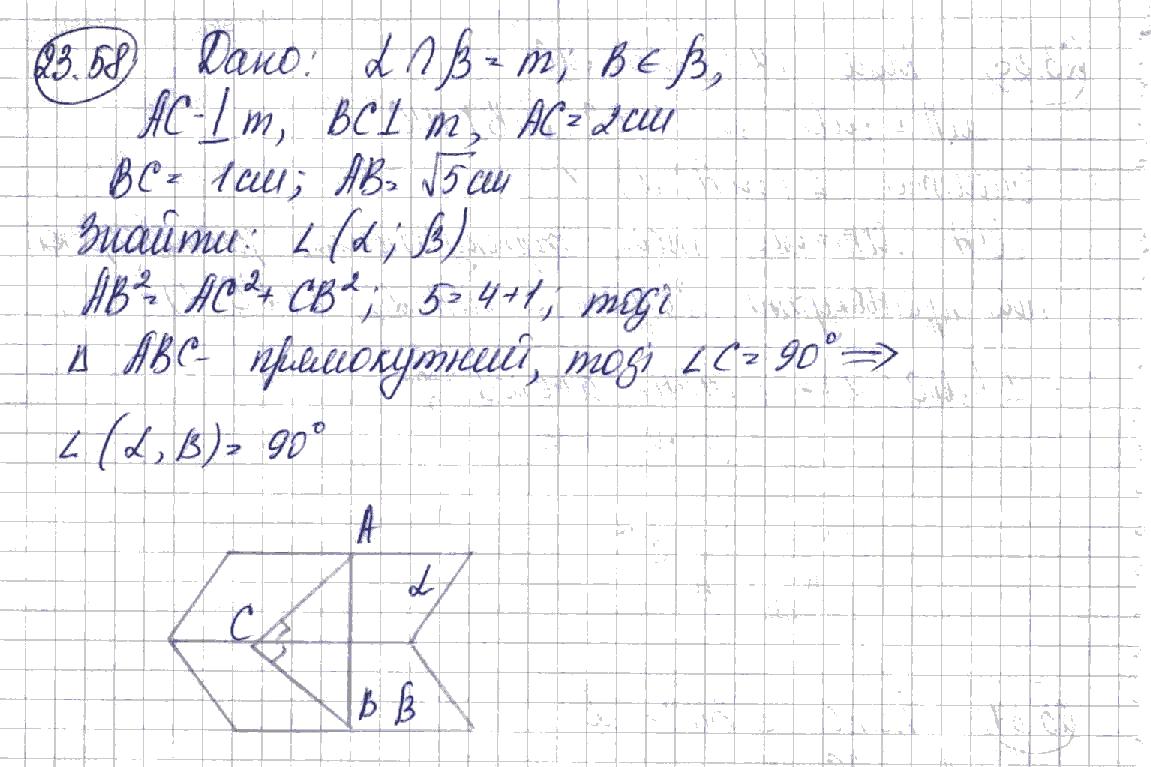 23.58 Дано: α ∩ β = m; B ∈ β,
AC ⊥ m, BC ⊥ m, AC = 2 см
BC = 1 см; AB = √5 см
Знайти: ∠ (α; β)
AB² = AC² + CB²; 5 = 4 + 1; тоді
Δ ABC - прямокутний, тоді ∠C = 90° ⇒
∠ (α, β) = 90°
A
α
C
B β